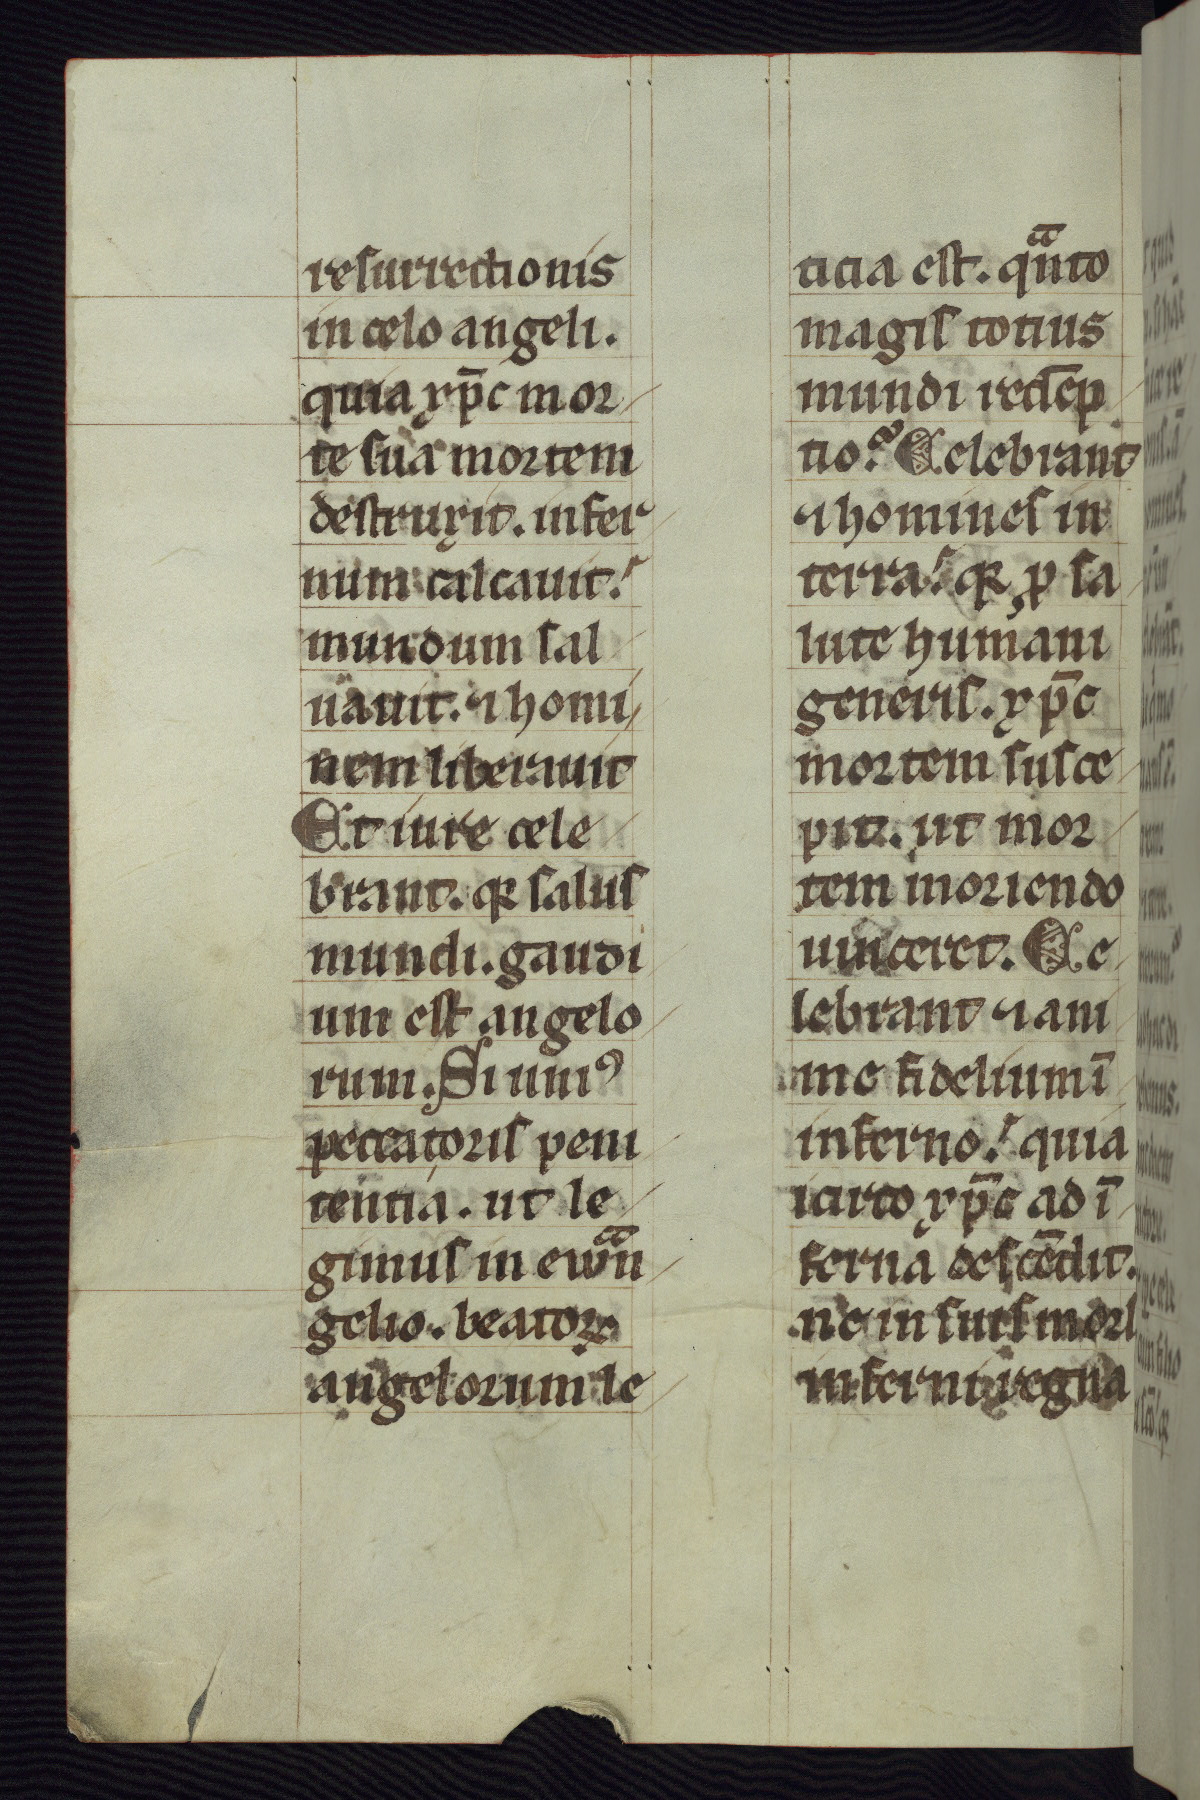 resurrectionis
in celo angeli.
quia xp̄c mor
te sua mortem
destruxit. infer
num calcauit.
mundum sal
uauit. ⁊ homi
nem liberauit
Et iure cele
brant. qꝛ salus
mundi. gaudi
um est angelo
rum. Si uniꝰ
peccatoris peni
tentia. ut le
gimus in ewān
gelio. beatoꝝ
angelorum le
ticia est. qᷓnto
magis totius
mundi redēp
tio? Celebrant
⁊ homines in
terra. qꝛ ꝓ sa
lute humani
generis. xp̄c
mortem susce
pit. ut mor
tem moriendo
uinceret. Ce
lebrant ⁊ ani
me fidelium ī
inferno. quia
icirco xp̄c ad ī
ferna descēdit.
ne in suis morl
inferni regna